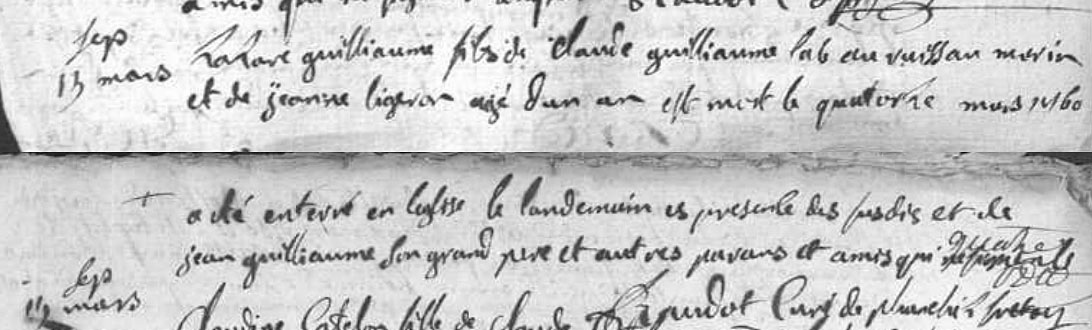 amis qui
sep
13 mars
Lazare guilliaume fils de Claude guilliaume lab au ruissau morin
et de jeanne ligeron agé dun an est mort le quatorze mars 1760
a été enterré en leglise le landemain es presence des susdis et de
jean guilliaume son grand pere et autres parans et amis qui
sep
mars
Claudine Catelon fille de Claude
Curé de